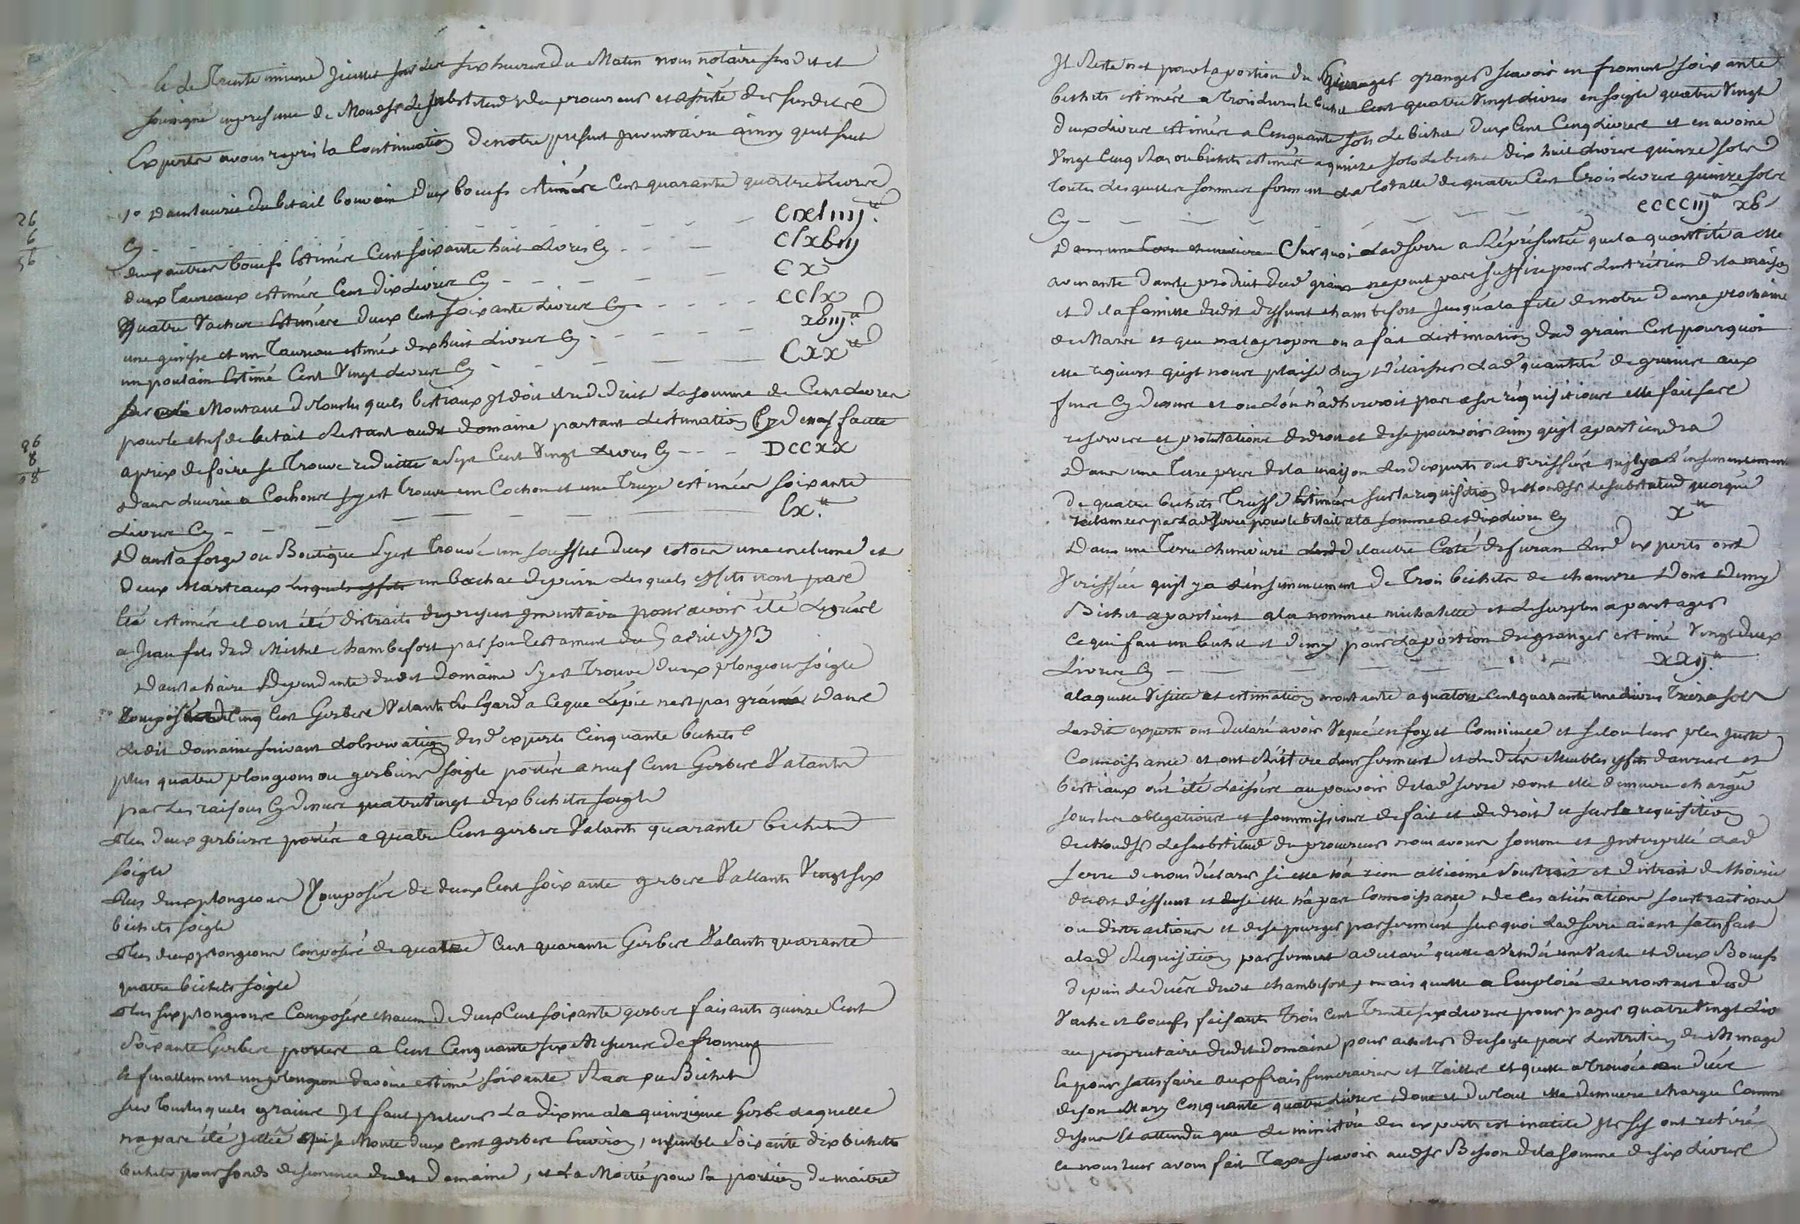 Et le Trente unieme Juillet sur les six heures du Matin nous notaire susdit et
soussigné en presence de Mondsr le substitud du procureur et assisté des susdits
Experts avons repris la Continuation de notre present Inventaire ainsy quil suit
1° Dans lecurie du betail bouvain deux boeufs estimés Cent quarante quatre Livres
Cy - - - cxliiij ₶
deux autres boeufs Estimés Cent soixante huit Livres Cy - - - clxviij
deux Taureaux estimés Cent dix Livres Cy - - - cx
Quatre Vaches Estimées deux Cent soixante Livres Cy - - - cclx
une genisse et un Taureau estimés dix huit Livres Cy - - - xviij ₶
un poulain Estimé Cent Vingt Livres Cy - - - Cxx ₶
Montant desquels bestiaux Il doit etre deduit La somme de Cent Livres
pour le chef de betail Restant audit domaine partant L'estimation Cy dessus faitte
a prix de foire se Trouve reduitte a Sept Cent Vingt Livres Cy - - - DCCXX
Dans Lecurie a Cochons sy est Trouvé un Cochon et une Truye estimés soixante
Livres Cy - - - lx ₶
Dans La forge ou Boutique sy est Trouvé un soufflet deux etoca une enclume et
deux Marteaux un bachac de pierre Lesquels effets n'ont pas
été estimés et ont été distraits du present Inventaire pour avoir été Légués
a Jean fils dud. Michel chambefort par son Testament du 5 avril 1773
Dans La haire Dependante dudit domaine sy est Trouvé deux plongeons soigle
Composés de Cinq Cent Gerbes Valants Eu Egard a ce que L'épie n'est pas grainée dans
Ledit domaine suivant L'observation desd. experts Cinquante bichets
plus quatre plongeons ou gerbiers soigle portés a neuf Cent Gerbes Valants
par Les raisons Cy dessus quatre Vingt dix bichets soigle
Plus deux gerbiers portés a quatre Cent gerbes Valants quarante bichets
soigle
Plus deux plongeons Composés de deux Cent soixante gerbes Vallants Vingt six
bichets soigle
Plus deux plongeons composés de quatre Cent quarante Gerbes Valants quarante
quatre bichets soigle
Plus six plongeons Composés chacun de deux Cent soixante gerbes faisants quinze Cent
Soixante Gerbes portées a Cent Cinquante six Mesures de froment
Et finallement un plongeon d'avoine estimé soixante Ras ou Bichets
sur Tous Lesquels grains Il faut prelever La Dixme a La quinzieme Gerbe Laquelle
n'a pas été jettée qui se Monte deux Cent gerbes Environ, ensemble soixante dix bichets
bichets pour fonds de semence dudit domaine, et La Moitié pour La portion du maitre
Il Reste net pour la portion du granger scavoir en froment soixante
bichets estimés a Trois Livres le bichet Cent quatre Vingt Livres en soigle quatre Vingt
deux Livres estimés a Cinquante sols Le bichet deux Cent Cinq Livres et en avoine
Vingt Cinq Ras ou bichets estimés a quinze sols Le bichet dix huit Livres quinze sols
toutes Lesquelles sommes forment La Totalle de quatre Cent Trois Livres quinze sols
Cy - - - cccciij ₶ xv
Sur quoi Ladte Serre a Représenté que La quantité a elle
avenante dans Le produit desd. grains ne peut pas suffire pour L'entretien de La maison
et de La famille dudit deffunt chambefort Jusqu'a la fete de notre dame prochaine
de Mars et que mal a propos on a fait L'estimation desd. grain Cest pourquoi
elle requiert quil nous plaise Luy délaisser Lad. quantité de graines aux
fins Cy dessus et ou L'on n'adhereroit pas a ses réquisitions elle fait ses
reserves et protestations de droit et de se pourvoir ainsy quil apartiendra
Dans une Terre pres de La maison Lesd. experts ont Veriffiés quil y a L'ensemencement
de quatre bichets Truffe Estimés sur La requisition de Mondsr Le substitud quoique
reclamés par Lad. Serre pour le betail a La somme de dix Livres Cy - x ₶
Dans une Terre cheneviere de L'autre Costé Lesd. experts ont
Veriffié quil y a L'ensemencement de Trois bichets de chanvre Dont Demy
Bichet apartient a La nommée michalette et Le surplus a partager
ce qui fait un bichet et demy pour La portion du granger estimé Vingt deux
Livres Cy - - - xxij ₶
a Laquelle Visitte et estimation montante a quatorze Cent quarante une Livres Treize sols
Lesdit experts ont declaré avoir Vaqué en foy et Conscience et selon Leur plus juste
Connoissance et ont Réitéré Leur serment et Lesdits Meubles effets denrées et
bestiaux ont été Laissés au pouvoir de Lad. Serre dont elle demeure chargée
sous Les obligations et soummissions de fait et de droit et sur La requisition
de Mondsr Le substitud du procureur nous avons sommé et Interpellé Lad.
Serre de nous déclarer si elle n'a rien alliéné soustrait et distrait de L'hoirie
dudit deffunt et si elle n'a pas Connoissance de ces alienations soustractions
ou distractions et de se purger par serment sur quoi Lad. Serre aiant satisfait
a Lad. Requisition par serment a declaré quelle a Vendu une Vache et deux Boeufs
depuis Le decès dudit chambefort, mais quelle a Emploié Le montant desd.
Vache et boeufs faisants Trois Cent Trente six Livres pour payer quatre Vingt Liv
au proprietaire dudit domaine pour acheter du soigle pour L'entretien du Menage
et pour satisfaire aux frais funeraires et Tailles et quelle a trouvée au decès
de son Mary Cinquante quatre Livres Donc et du tout elle demeure chargée Comme
dessus Et attendu que Le ministere des experts est inutile Ils se sont retirés
et nous Leur avons fait Taxe scavoir audsr Besson de La somme de six Livres
26
6
56
96
8